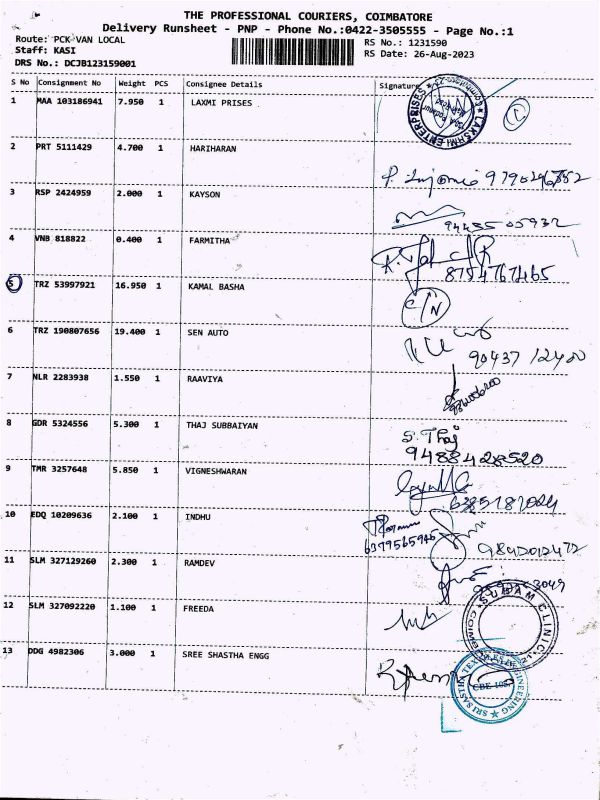 THE PROFESSIONAL COURIERS, COIMBATORE
Delivery Runsheet - PNP - Phone No.:0422-3505555 - Page No.:1
Route: PCK-VAN LOCAL RS No.: 1231590
Staff: KASI RS Date: 26-Aug-2023
DRS No.: DCJB123159001
S No Consignment No Weight PCS Consignee Details Signature
1 MAA 103186941 7.950 1 LAXMI PRISES
LAKSHMI ENTERPRISES
2 PRT 5111429 4.700 1 HARIHARAN
3 RSP 2424959 2.000 1 KAYSON
94435 05932
4 VNB 818822 0.400 1 FARMITHA
8754767465
5 TRZ 53997921 16.950 1 KAMAL BASHA
C/N
6 TRZ 190807656 19.400 1 SEN AUTO
90437 12400
7 NLR 2283938 1.550 1 RAAVIYA
8 GDR 5324556 5.300 1 THAJ SUBBAIYAN
S. Thaj
9488428520
9 TMR 3257648 5.850 1 VIGNESHWARAN
6385787024
10 EDQ 10209636 2.100 1 INDHU
6379565946
9842012472
11 SLM 327129260 2.300 1 RAMDEV
12 SLM 327092220 1.100 1 FREEDA
CLINIC
13 DDG 4982306 3.000 1 SREE SHASTHA ENGG